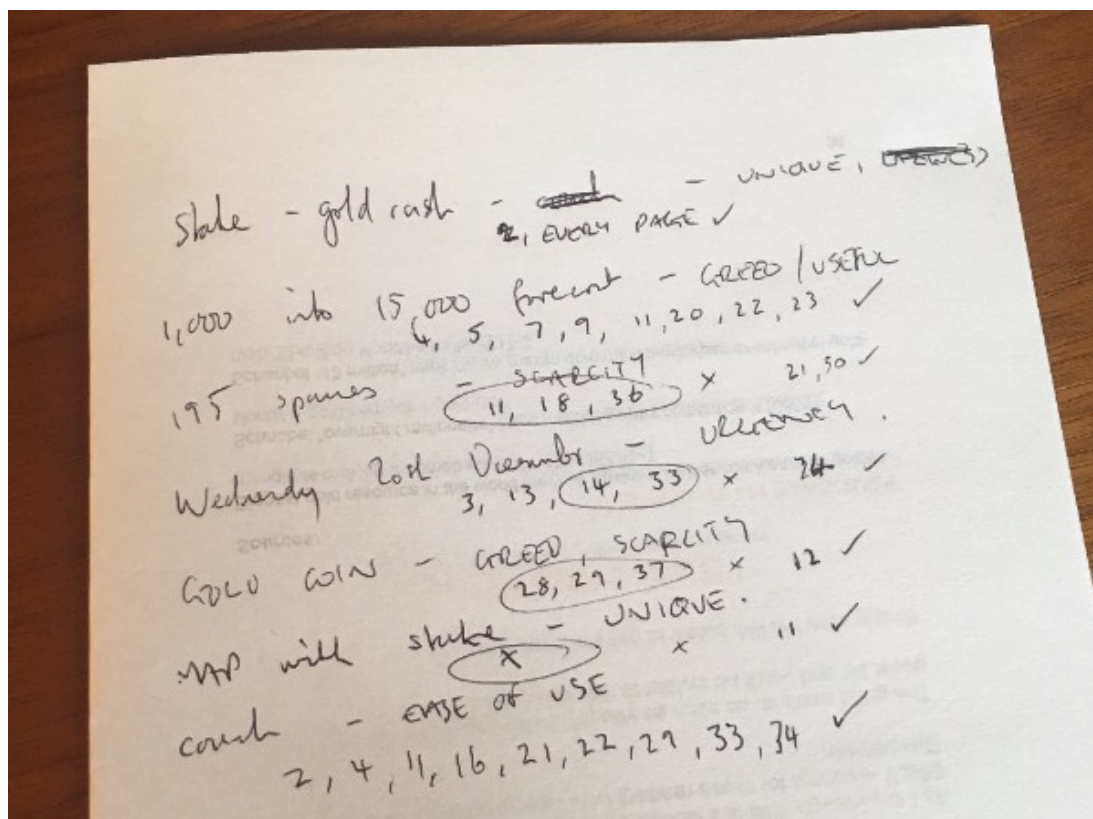 Stake - gold rush - - UNIQUE,
2, EVERY PAGE ✓
1,000 into 15,000 forecast - GREED/USEFUL
4, 5, 7, 9, 11, 20, 22, 23 ✓
195 spaces - SCARCITY
11, 18, 36 x 21, 30 ✓
Wednesday 20th December - URGENCY.
3, 13, 14, 33 x 24 ✓
GOLD COIN - GREED, SCARCITY
28, 29, 37 x 12 ✓
MAP with stake - UNIQUE.
x x 11 ✓
couch - EASE OF USE
2, 4, 11, 16, 21, 22, 29, 33, 34 ✓
Sources: